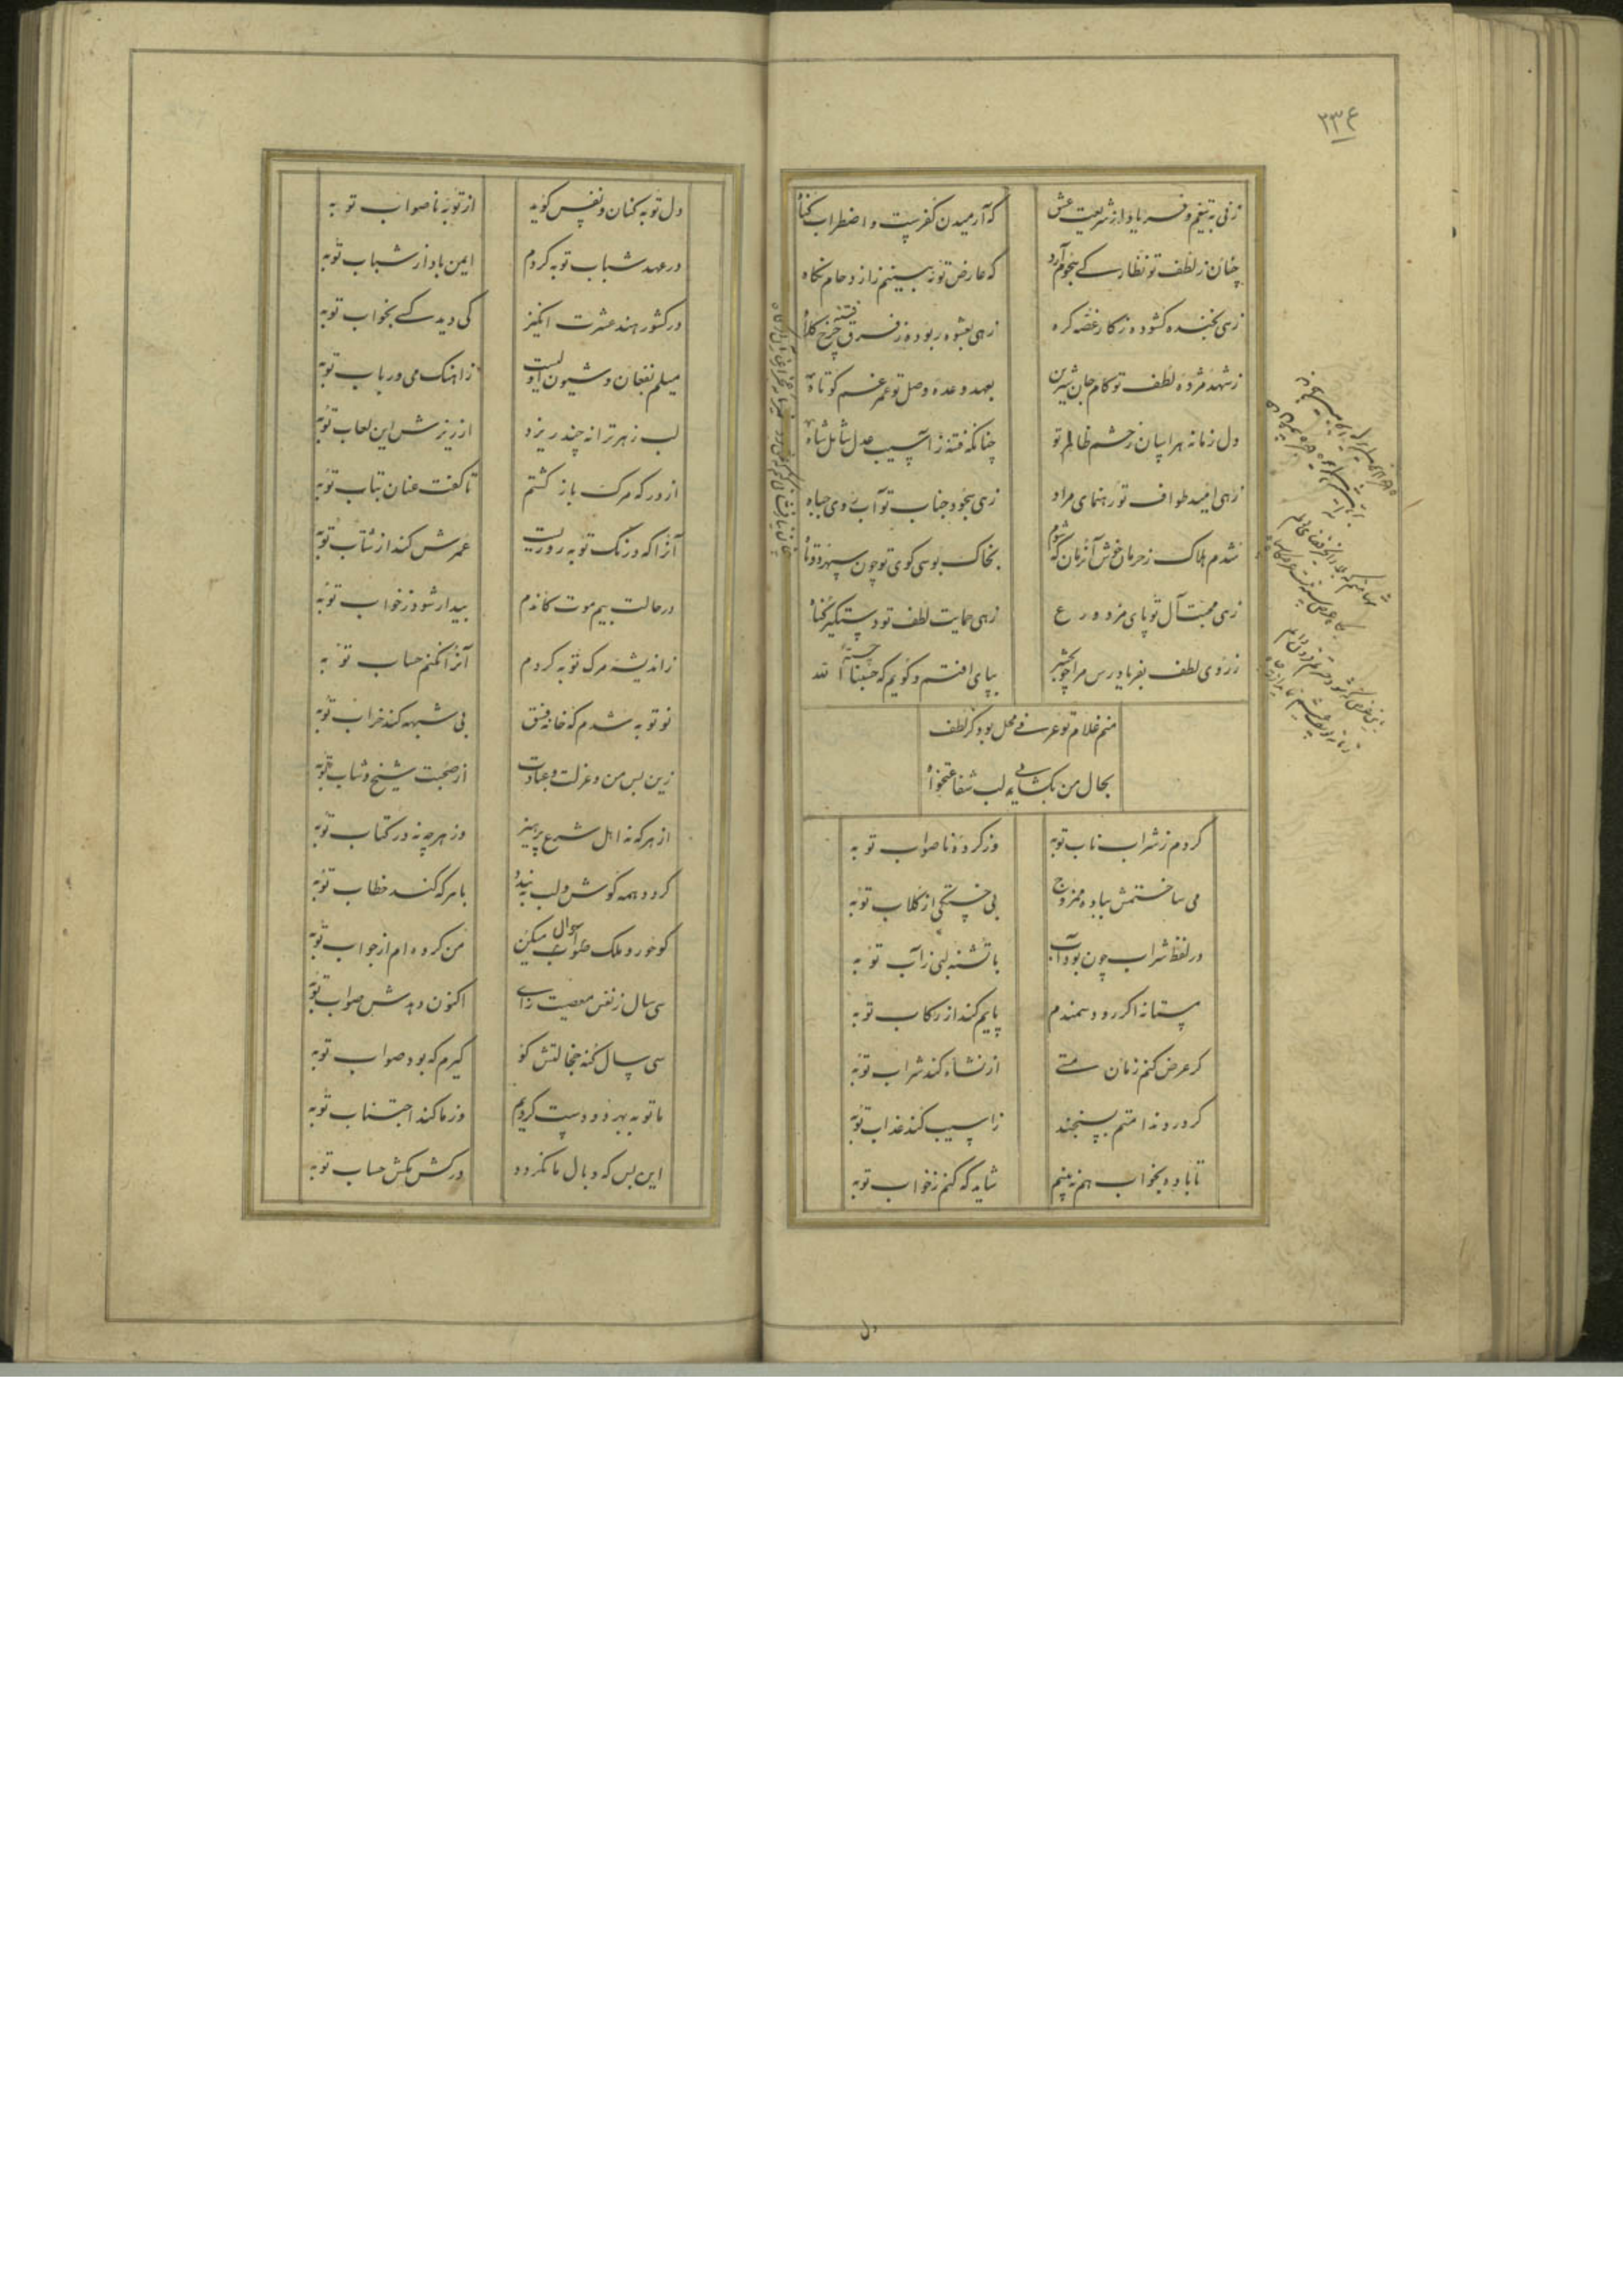 ۲۳۴
زنی به تیغم و فریاد از شریعت عشق که آرمیدن کفریست و اضطراب گناه
چنان ز لطف تو نظارگی هجوم آرد که عارض تو نه بینم ز ازدحام نگاه
زهی بخنده گشوده ز کار غصه گره زهی بعشوه ربوده ز فرق فتنه کلاه
چرخ
ز شهد مژده لطف تو کام جان شیرین بعهد وعده وصل تو عمر غم کوتاه
دل زمانه هراسان ز چشم ظالم تو چنانکه فتنه ز آسیب عدل شامل شاه
زهی امید طواف تو رهنمای مراد زهی سجود جناب تو آب روی جباه
شدم هلاک ز حرمان خوش آنزمان که شوم بخاک بوسی کوی تو چون سپهر دوتاه
زهی محبت آل تو پای مزد ورع زهی حمایت لطف تو دستگیر گناه
ز روی لطف بفریاد رس مرا چو بحشر بپای افتم و گویم که حسبنا الله
منم غلام تو عرفی محل بود کز لطف
بحال من بگشایی لب شفاعتخواه
کردم ز شراب ناب توبه وز کرده ناصواب توبه
می ساختمش بباده ممزوج بی خستگی از گلاب توبه
در لفظ شراب چون بود آب با تشنه لبی ز آب توبه
مستانه اگر رود سمندم پایم کند از رکاب توبه
گر عرض کنم زمان مستی از نشاء کند شراب توبه
گر در ندامتم بسنجند ز آسیب کند عذاب توبه
تا باده بخواب هم نه بینم شاید که کنم ز خواب توبه
دل
دل توبه کنان و نفس گوید از توبه ناصواب توبه
در عهد شباب توبه کردم ایمن باد از شباب توبه
در کشور هند عشرت انگیز کی دید کسی بخواب توبه
میلم بفغان و شیون اولیست ز آهنگ می و رباب توبه
لب زهر ترانه چند ریزد از ریزش این لعاب توبه
از درگه مرگ باز گشتم تا گفت عنان بتاب توبه
آنرا که درنگ توبه روزیست عمرش کند از شتاب توبه
در حالت بیم موت کاندم بیدار شود ز خواب توبه
ز اندیشه مرگ توبه کردم آنرا نکنم حساب توبه
نو توبه شدم که خانه فسق بی شبهه کند خراب توبه
زین پس من و عزلت و عبادت از صحبت شیخ و شاب توبه
از هر که نه اهل شرع پرهیز وز هر چه نه در کتاب توبه
گردد همه گوش و لب به بندد با هر که کند خطاب توبه
گو حور و ملک سوال میکن من کرده ام از جواب توبه
سی سال ز نفس معصیت زای اکنون دهدش صواب توبه
سی سال گنه خجالتش کو گیرم که بود صواب توبه
ما توبه بهر دو دست کردیم وز ما کند اجتناب توبه
این بس که وبال ما نگردد در کشمکش حساب توبه